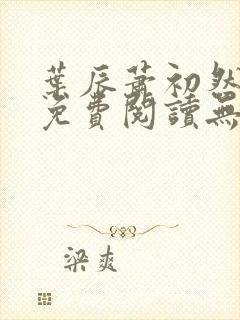 葉辰蕭初然
免費閱讀無
梁爽